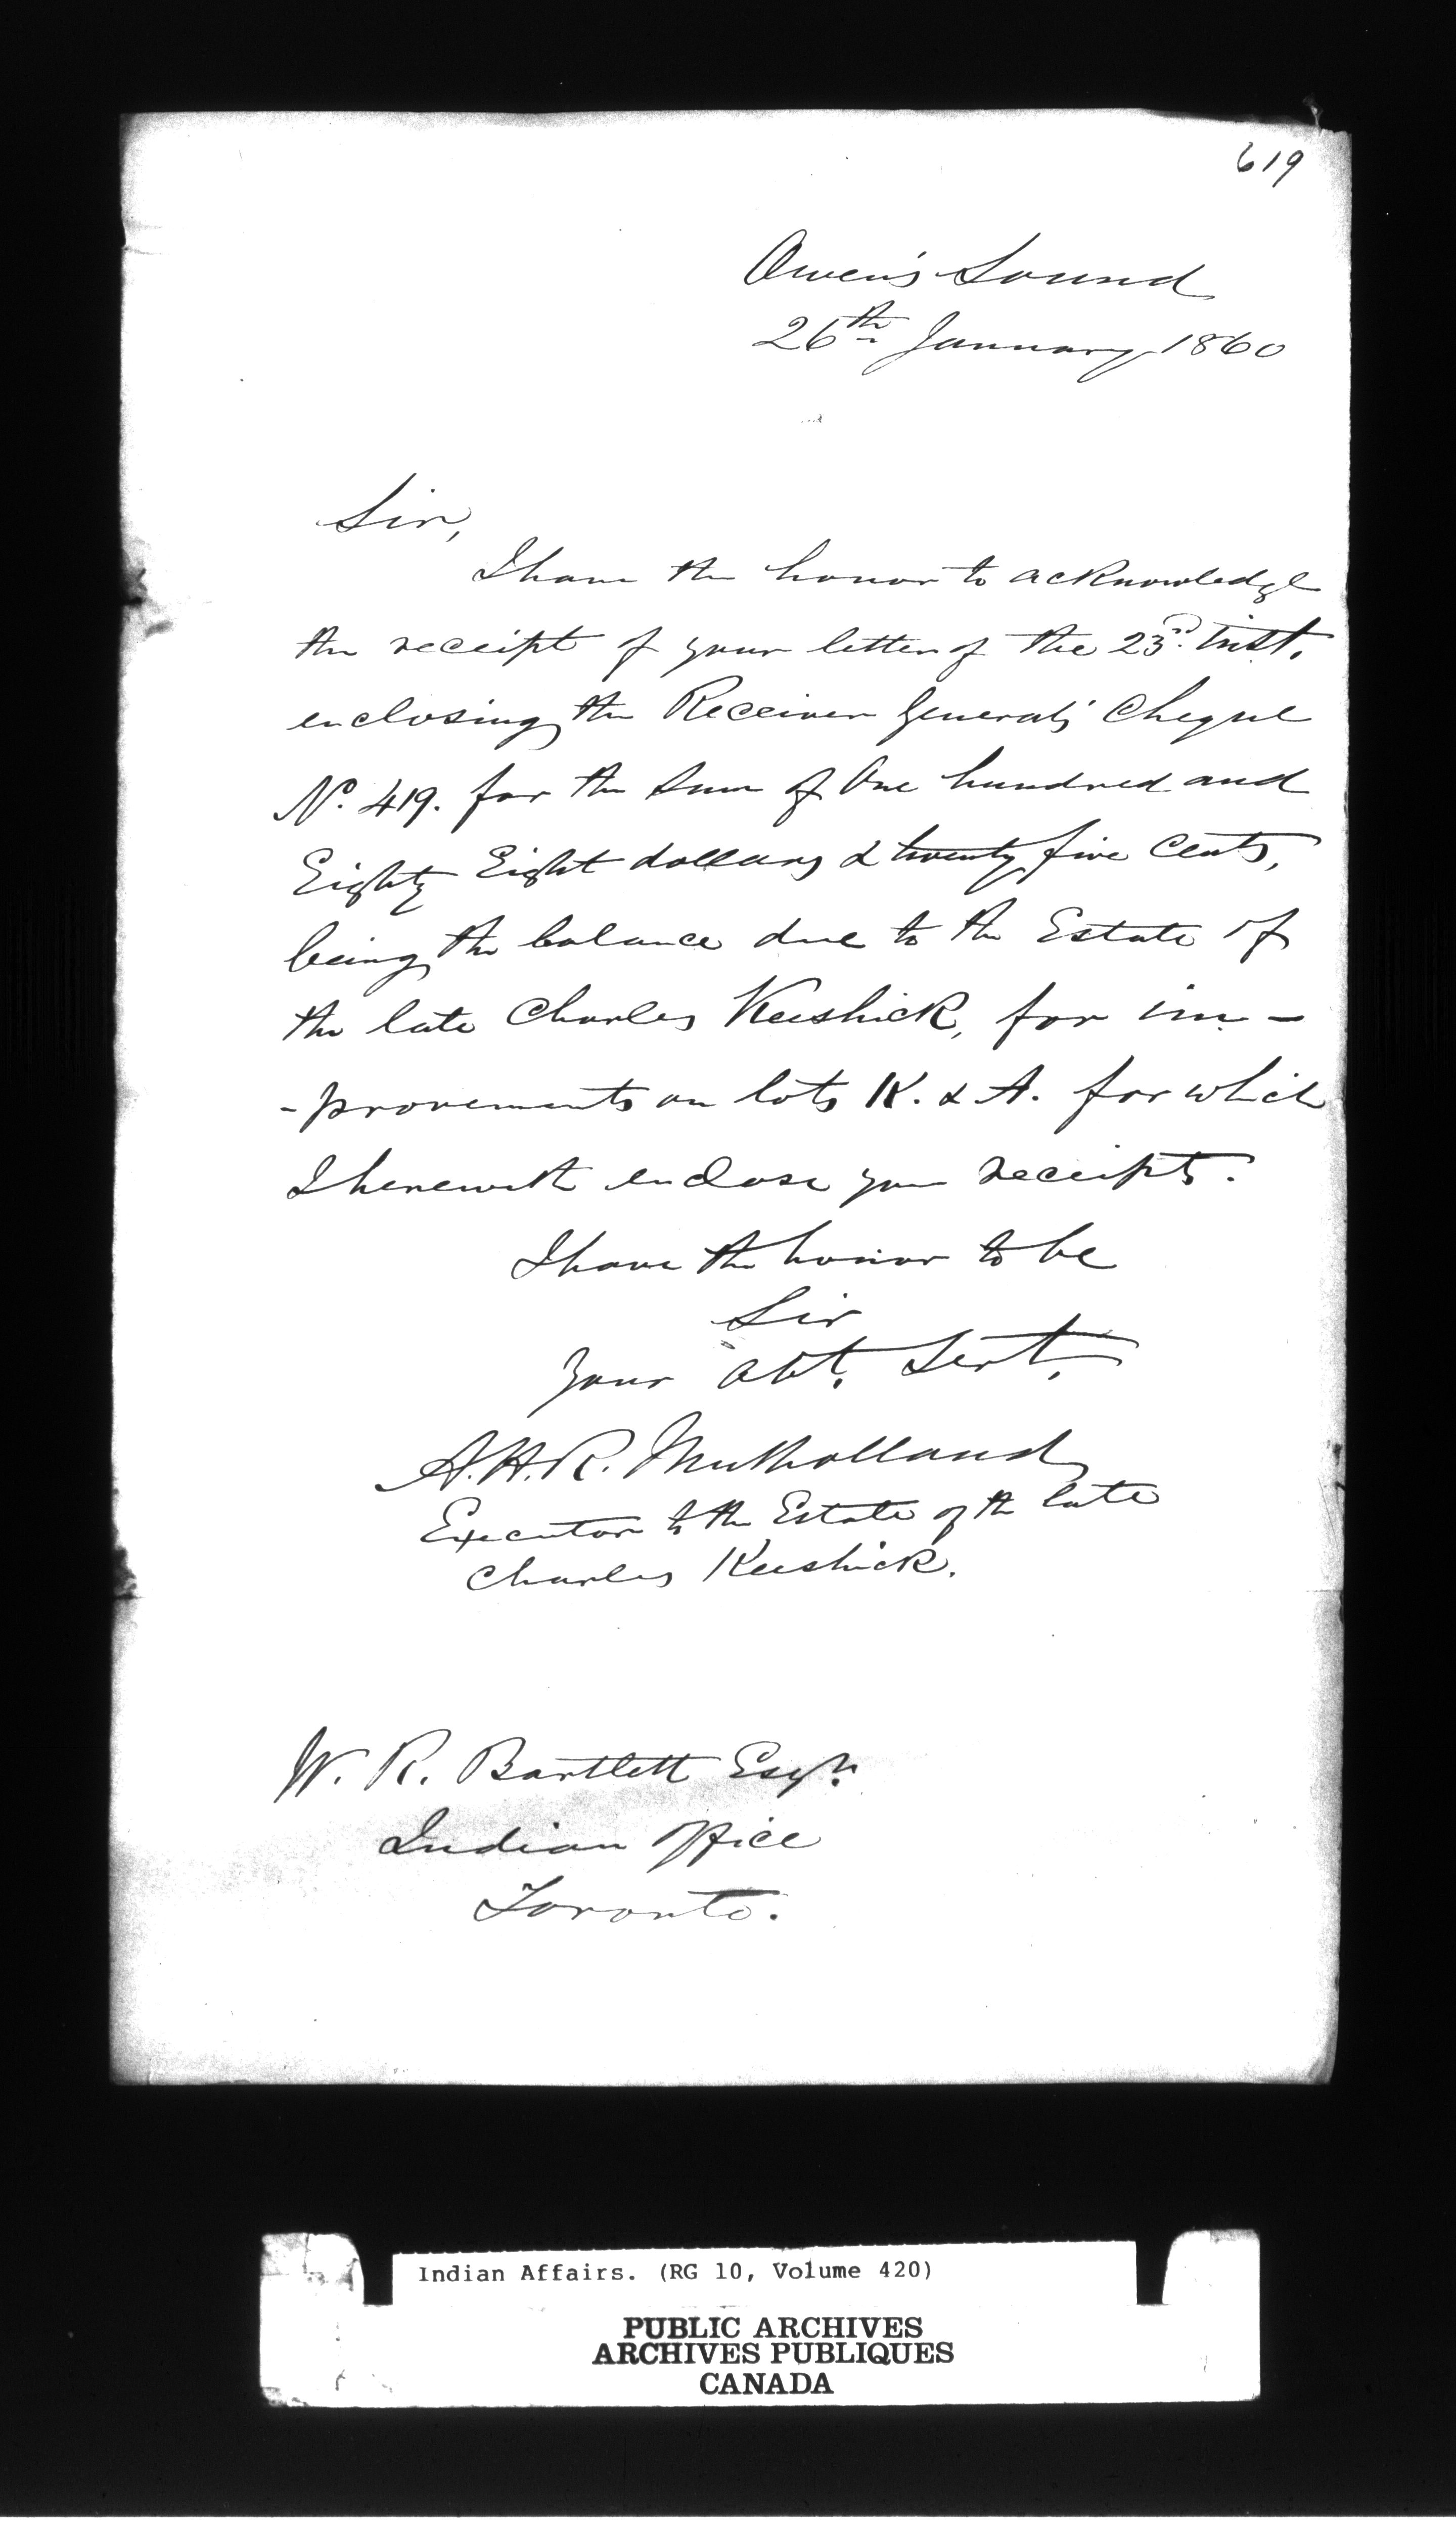 619
Owen's Sound
26th January 1860
Sir,
I have the honor to acknowledge
the receipt of your letter of the 23rd inst.
enclosing the Receiver General's Cheque
No. 419. for the Sum of One hundred and
Eighty Eight dollars & twenty five Cents,
being the balance due to the Estate of
the late Charles Keeshick, for im-
-provements on lots K. & A. for which
I herewith enclose you receipts.
I have the honor to be
Sir
Your obt. Servt.
A.H.R. Mulholland
Executor to the Estate of the late
Charles Keeshick.
W. R. Bartlett Esqr.
Indian Office
Toronto.
Indian Affairs. (RG 10, Volume 420)
PUBLIC ARCHIVES
ARCHIVES PUBLIQUES
CANADA